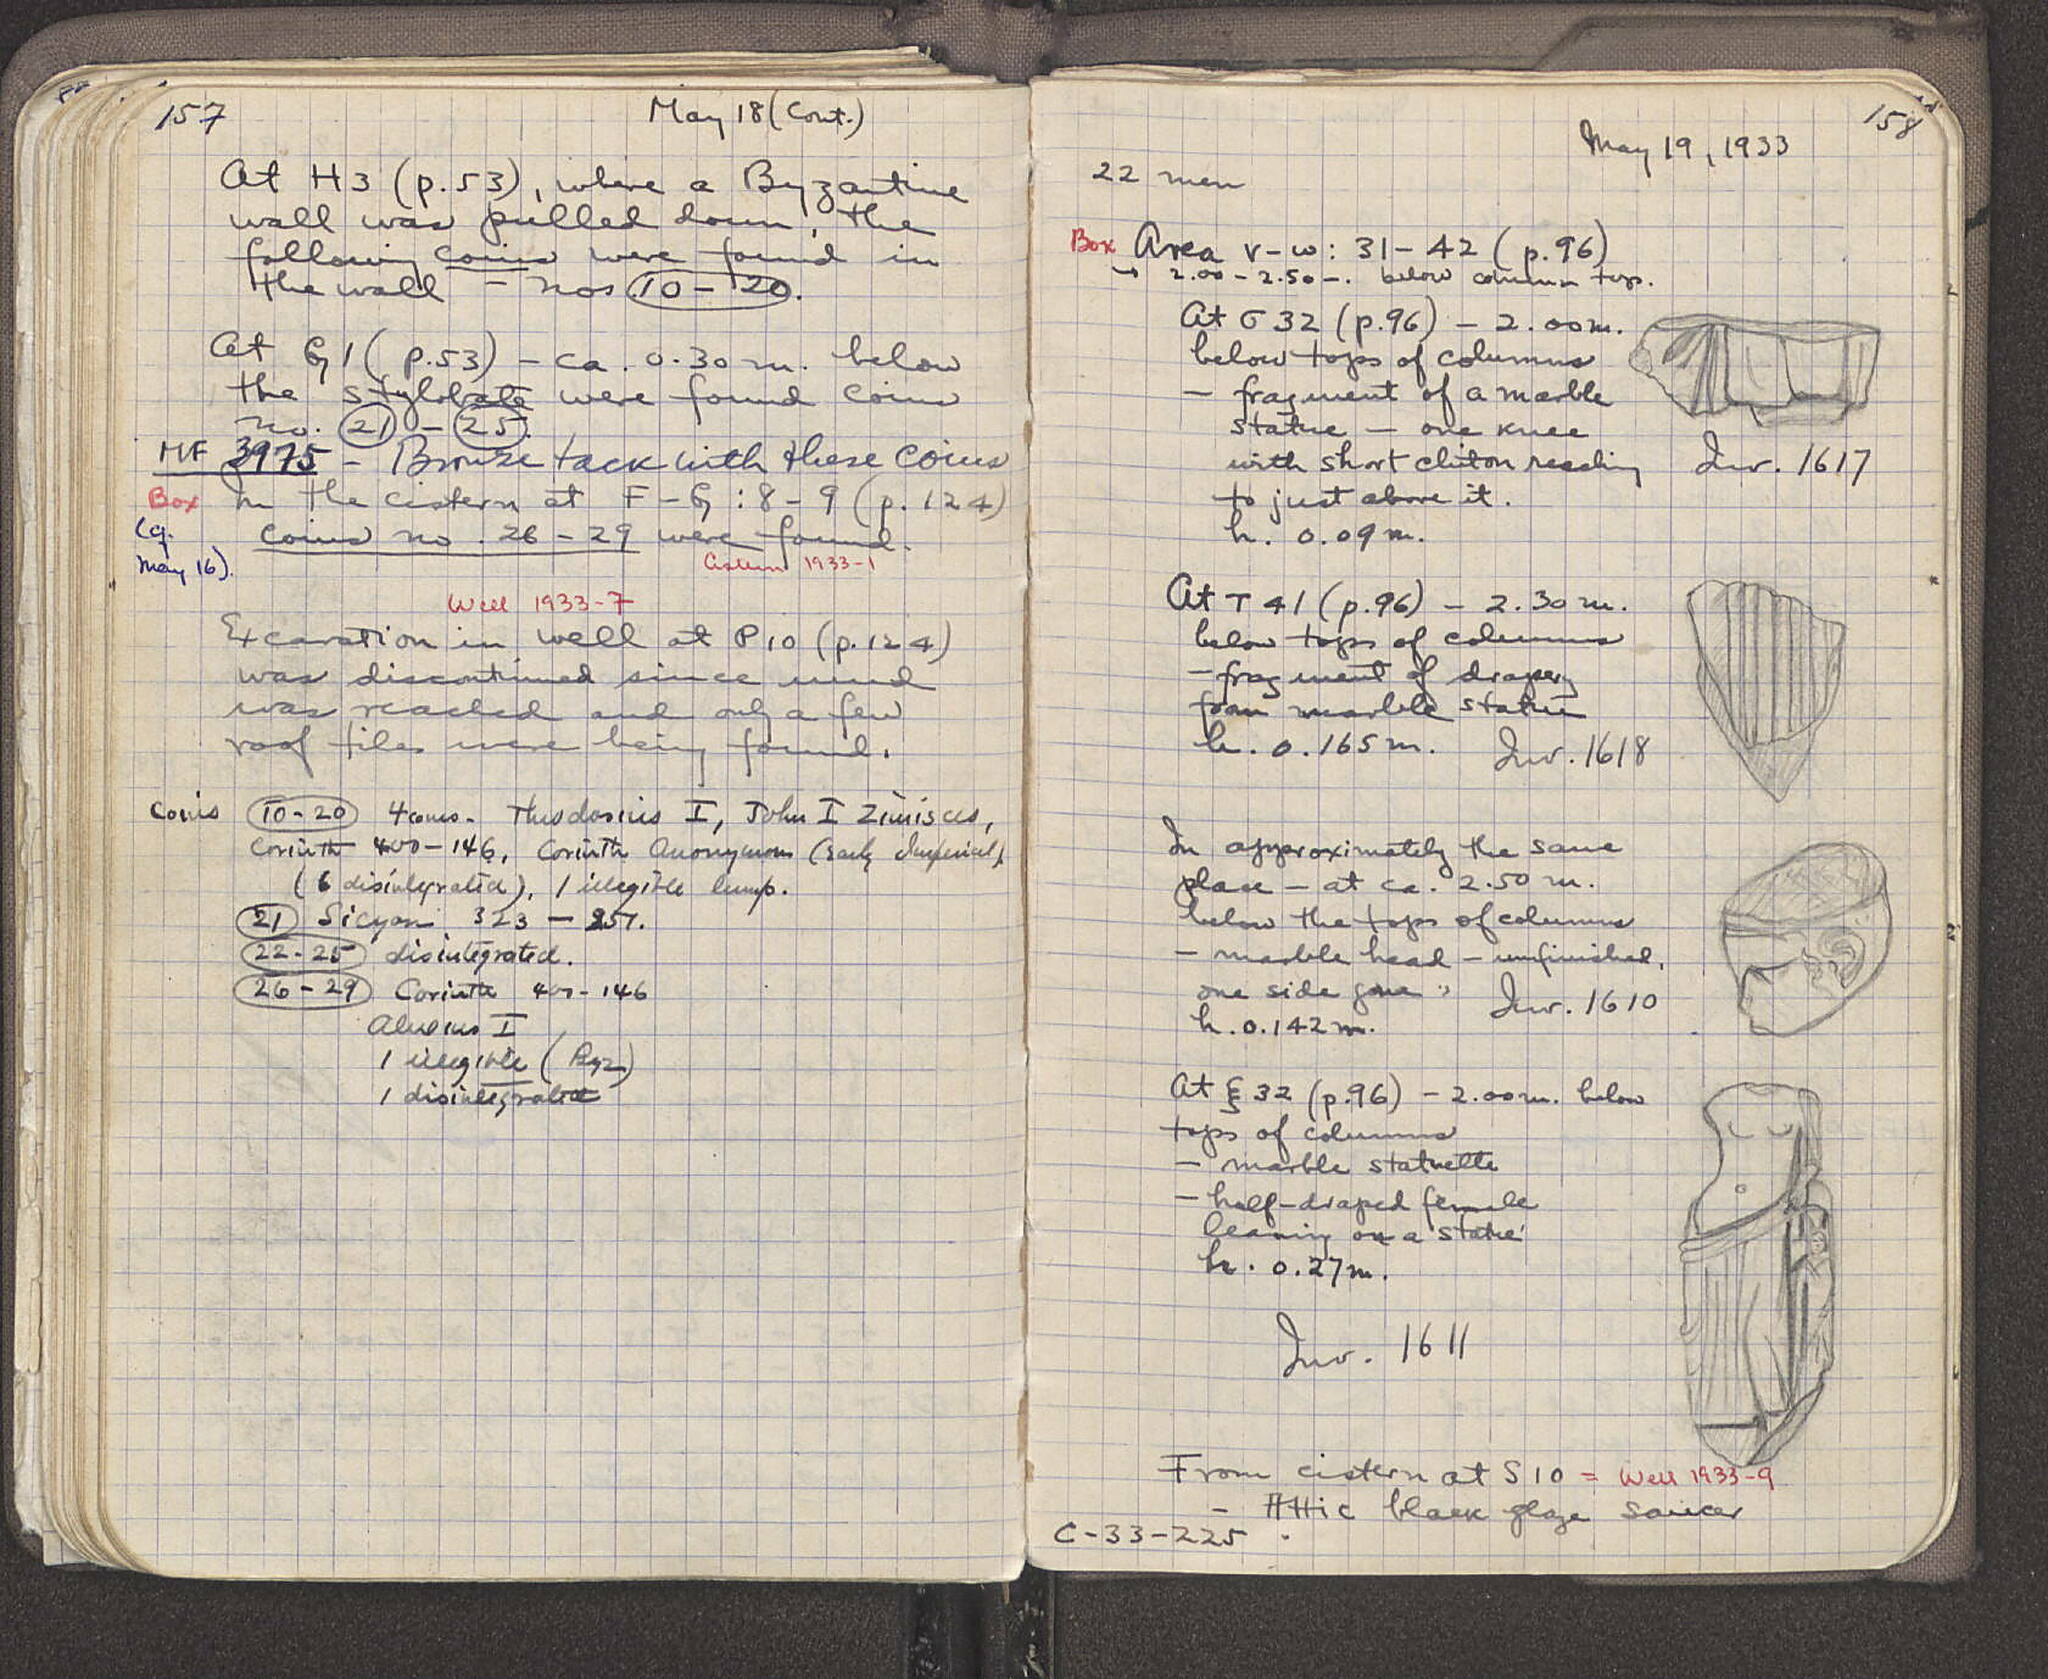 157
May 18 (Cont.)
At H3 (p.53), where a Byzantine
wall was pulled down, the
following coins were found in
the wall - nos 10-20.
At G1 (p.53) - ca. 0.30 m. below
the stylobate were found coins
no. 21 - 25.
MF 3975 - Bronze tack with these coins
Box In the cistern at F-G:8-9 (p.124)
(cf. coins no. 26-29 were found.
May 16). Cistern 1933-1
Well 1933-7
Excavation in well at P10 (p.124)
was discontinued since mud
was reached and only a few
roof tiles were being found.
Coins 10-20 4 coins - Theodosius I, John I Zimisces,
Corinth 400-146, Corinth Anonymous (Early Imperial),
(6 disintegrated), 1 illegible lump.
21 Sicyon 323 - 251.
22-25 disintegrated.
26-29 Corinth 400-146
Alexius I
1 illegible (Byz)
1 disintegrated
158
May 19, 1933
22 men
Box Area v-w: 31-42 (p.96)
→ 2.00-2.50-. below column tops.
At σ 32 (p.96) - 2.00 m.
below tops of columns
- fragment of a marble
statue - one knee
with short chiton reaching
to just above it.
h. 0.09 m.
Inv. 1617
At T 41 (p.96) - 2.30 m.
below tops of columns
- fragment of drapery
from marble statue
h. 0.165 m. Inv. 1618
In approximately the same
place - at ca. 2.50 m.
below the tops of columns
- marble head - unfinished,
one side gone Inv. 1610
h. 0.142 m.
At ξ 32 (p.96) - 2.00 m. below
tops of columns
- marble statuette
- half-draped female
leaning on a statue
h. 0.27 m.
Inv. 1611
From cistern at S10 = Well 1933-9
- Attic black glaze saucer
C-33-225